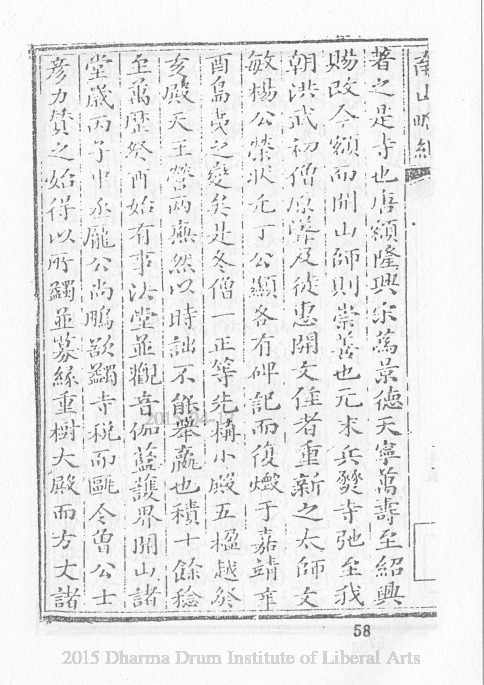 南山晚
著之是寺也唐額隆興宋為景德天寧萬壽至紹興
賜改今額而開山師則崇善也元末兵燹寺弛至我
朝洪武初僧原澤及徒惠開文住者重新之太師文
敏楊公榮狀元丁公顯各有碑記而復燬于嘉靖辛
酉島夷之變矣是冬僧一正等先搆小殿五楹越癸
亥殿天王營兩廡然以時詘不能舉羸也積十餘稔
至萬歷癸酉始有事法堂並觀音伽藍護界開山諸
堂歲丙子中丞龐公尚鵬欲蠲寺稅而甌令魯公士
彥力贊之始得以所蠲並募緣重樹大殿而方丈諸
58
2015 Dharma Drum Institute of Liberal Arts